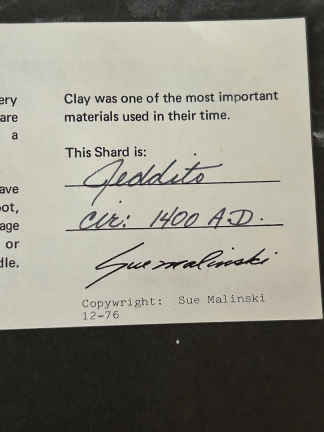 ery
are
a
ave
oot,
age
or
dle.
Clay was one of the most important
materials used in their time.
This Shard is:
Jeddito
cir: 1400 A.D.
Sue Malinski
Copywright: Sue Malinski
12-76